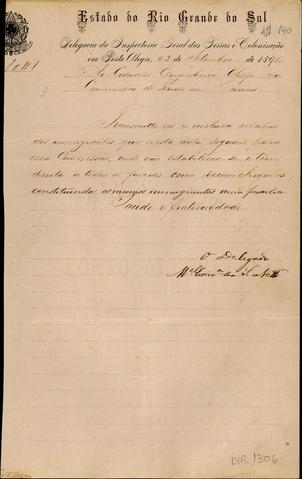 Estado do Rio Grande do Sul
190
Delegacia da Inspectoria Geral das Terras e Colonização
em Porto Alegre, 23 de Setembro de 189
Ao Cidadão Engenheiro Chefe da
Commissão de Terras em
Transmitto-vos a inclusa relação
dos immigrantes que nesta data seguem para
essa Commissão, onde vão estabelecer-se e tem
direito a todos os favores como recemchegados
constituindo os mesmos immigrantes uma familia
Saude e fraternidade
O Delegado
DIR 1306